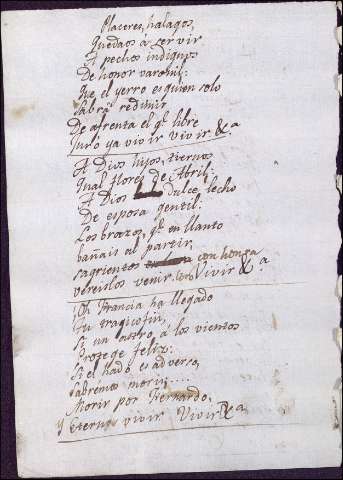 Placeres, halagos,
Quedaos á servir
A pechos indignos
De honor varonil:
Que el yerro es quien solo
Sabrá redimir
De afrenta el qe. libre
Juró ya vivir Vivir &a
A Dios hijos, tiernos
Qual flores de Abril:
A Dios dulce lecho
De esposa gentil:
Los brazos, qe. en llanto
bañais al partir,
sagrientos con honra
vereislos venir. Vivir &a
¡Oh Francia ha llegado
Tu tragico fin,
Si un astro a los vientos
Protege feliz:
Si el hado es adverso,
Sabremos morir....
Morir por Fernando,
Y eternos vivir Vivir &a